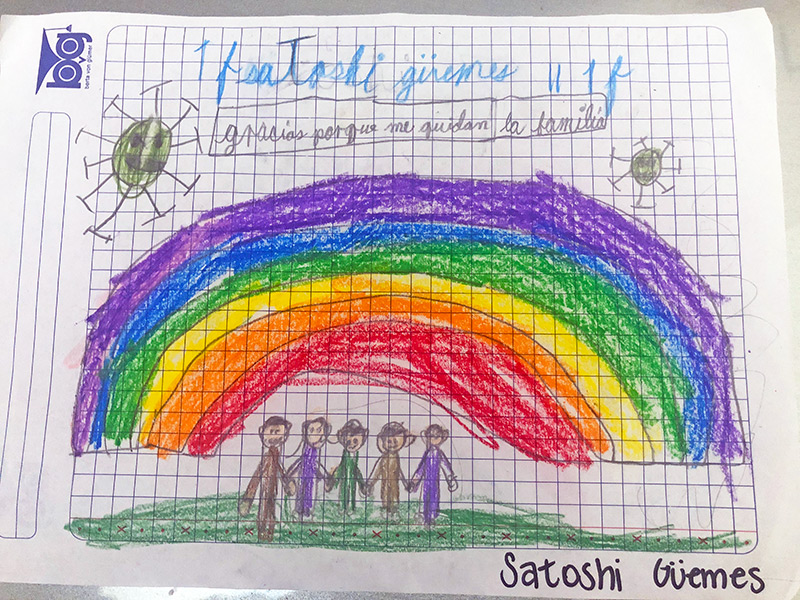 bvg
berta von glümer
1 f satoshi güemes 11 1 f
gracias porque me quidan la familia
Satoshi Güemes